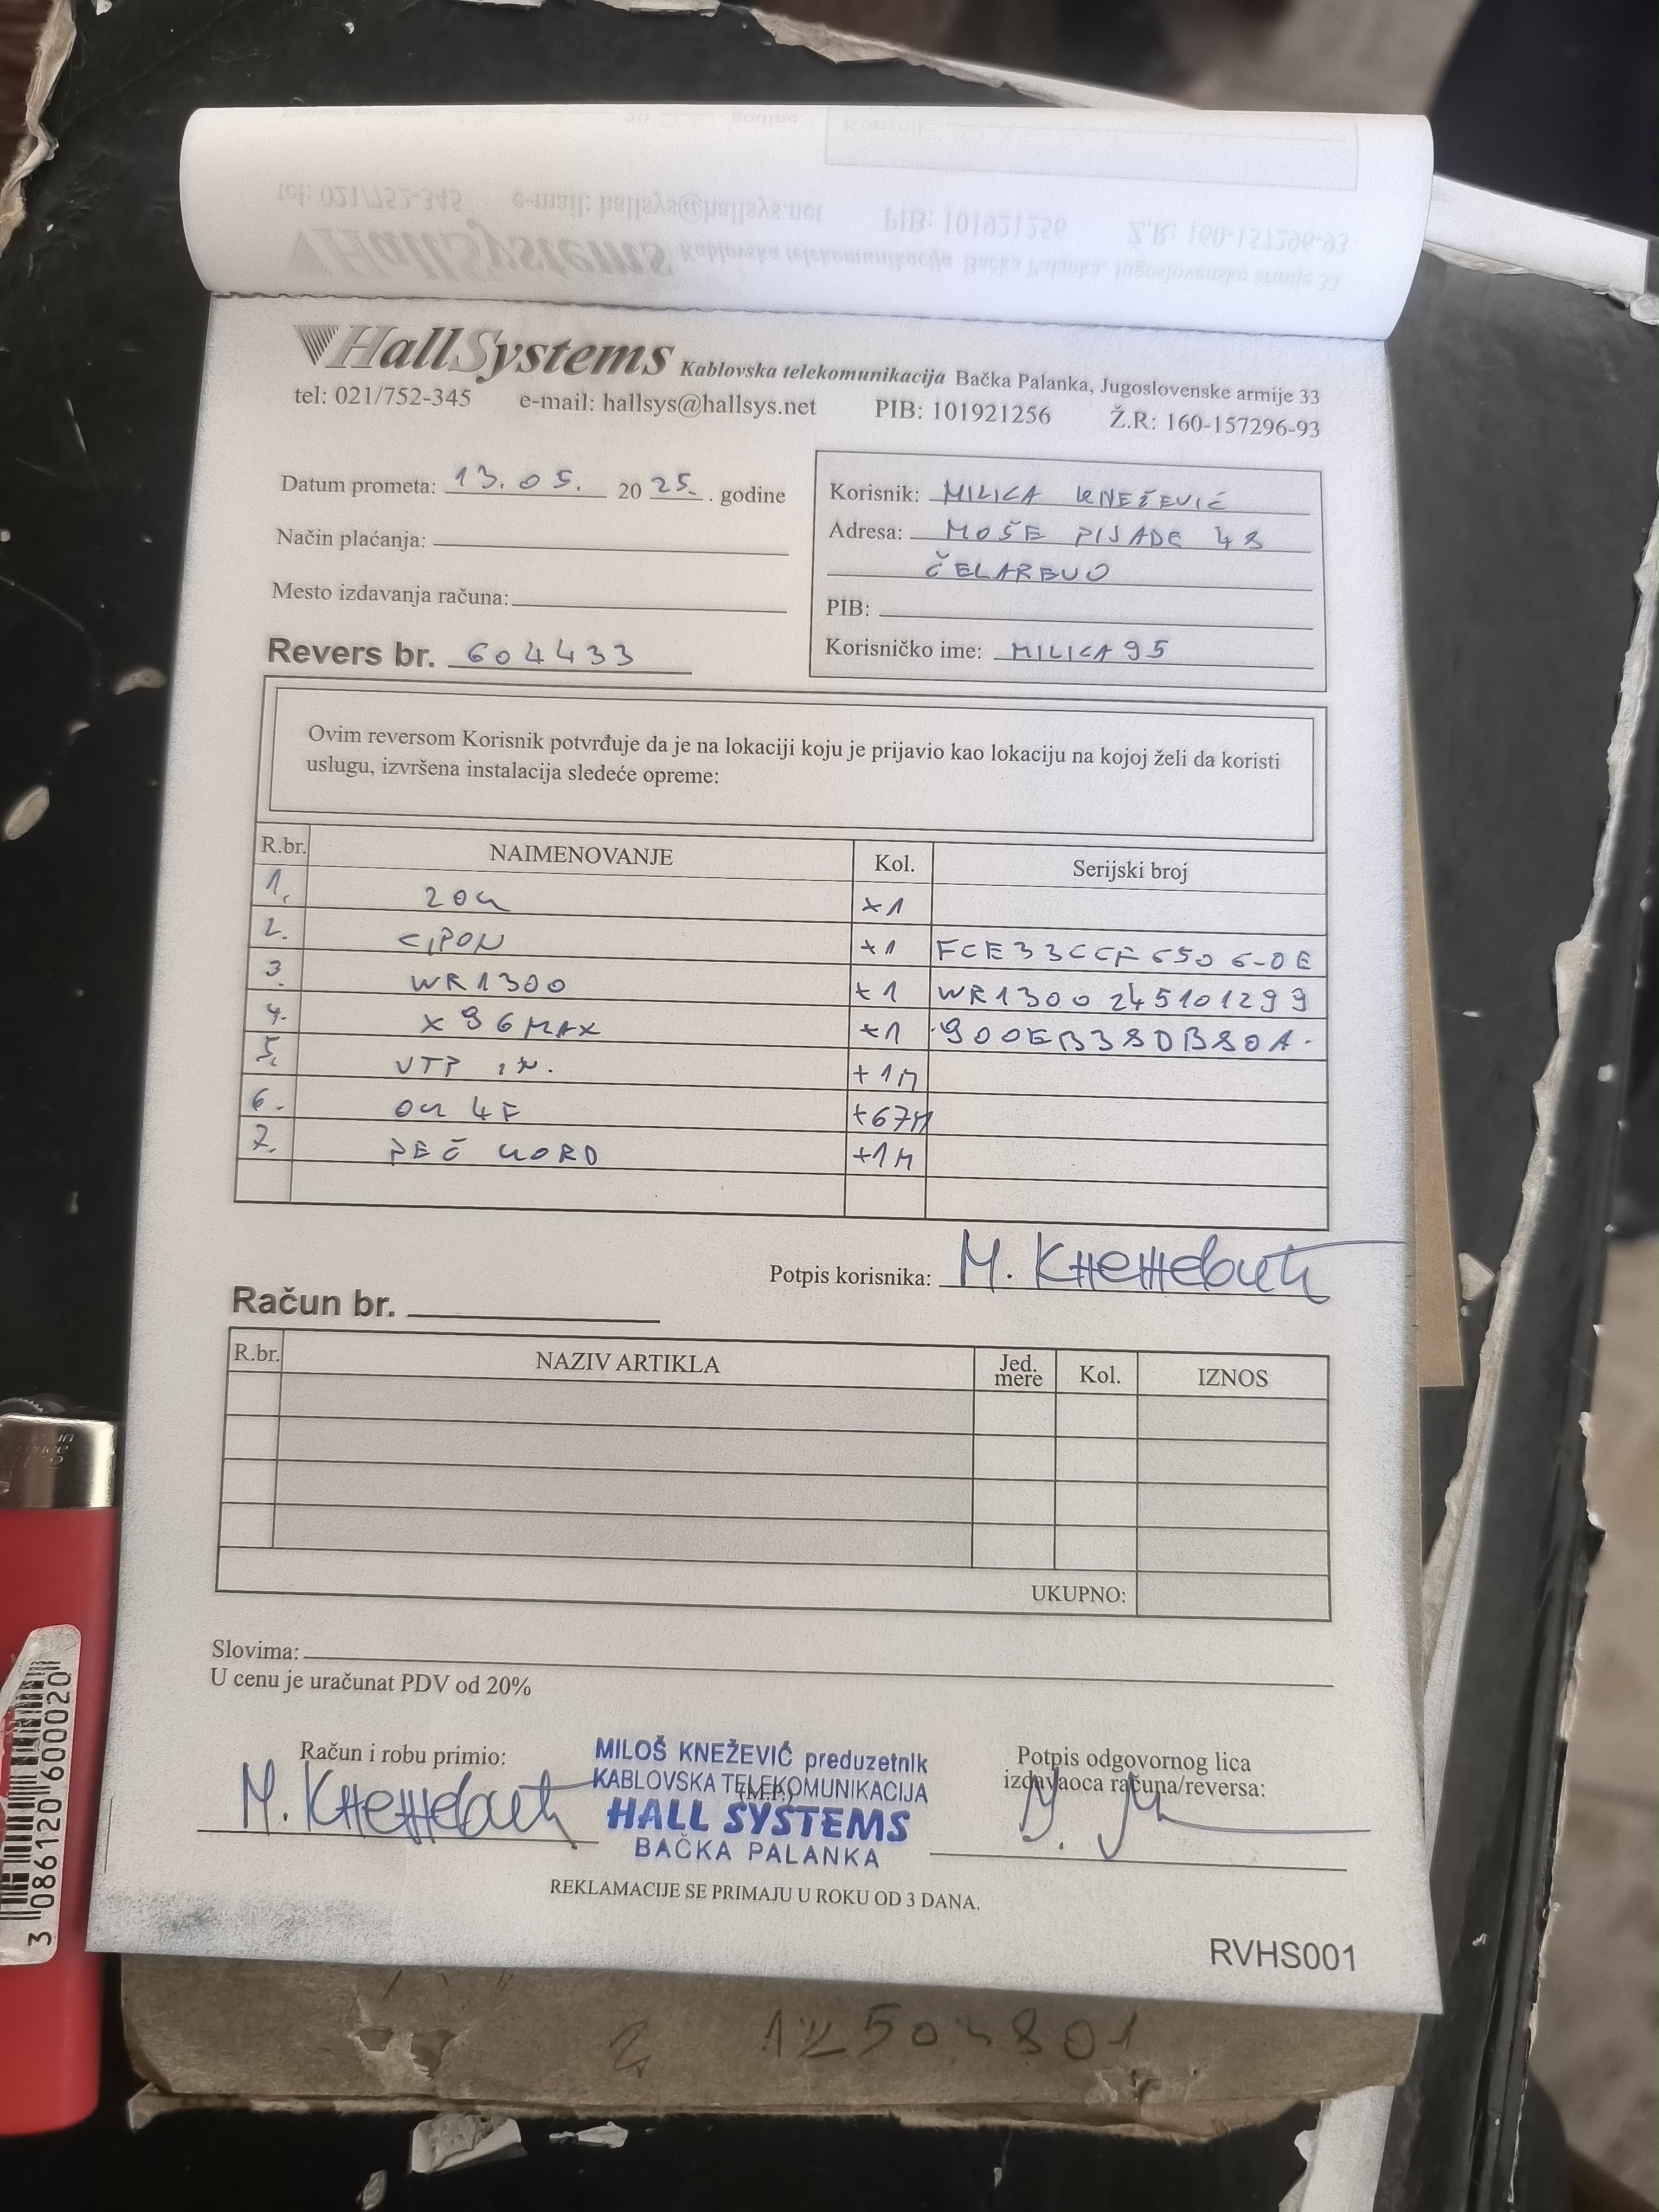 HallSystems Kablovska telekomunikacija Bačka Palanka, Jugoslovenske armije 33
tel: 021/752-345 e-mail: hallsys@hallsys.net PIB: 101921256 Ž.R: 160-157296-93
Datum prometa: 13.05. 2025. . godine
Način plaćanja:
Mesto izdavanja računa:
Revers br. 604433
Korisnik: MILICA KNEŽEVIĆ
Adresa: MOŠE PIJADE 48
ČELAREVO
PIB:
Korisničko ime: MILICA95
Ovim reversom Korisnik potvrđuje da je na lokaciji koju je prijavio kao lokaciju na kojoj želi da koristi
uslugu, izvršena instalacija sledeće opreme:
R.br. NAIMENOVANJE Kol. Serijski broj
1. ×1
2. ×1
3. WR1300 ×1 WR1300 245101299
4. X96MAX ×1
5. UTP ×1M
6. OK 4F ×67M
7. PEČ KORD ×1M
Potpis korisnika: М. Кнежевић
Račun br.
R.br. NAZIV ARTIKLA Jed. mere Kol. IZNOS
UKUPNO:
Slovima:
U cenu je uračunat PDV od 20%
Račun i robu primio:
М. Кнежевић
MILOŠ KNEŽEVIĆ preduzetnik
KABLOVSKA TELEKOMUNIKACIJA
(M.P.)
HALL SYSTEMS
BAČKA PALANKA
Potpis odgovornog lica
izdavaoca računa/reversa:
REKLAMACIJE SE PRIMAJU U ROKU OD 3 DANA.
RVHS001
3 086120 600020